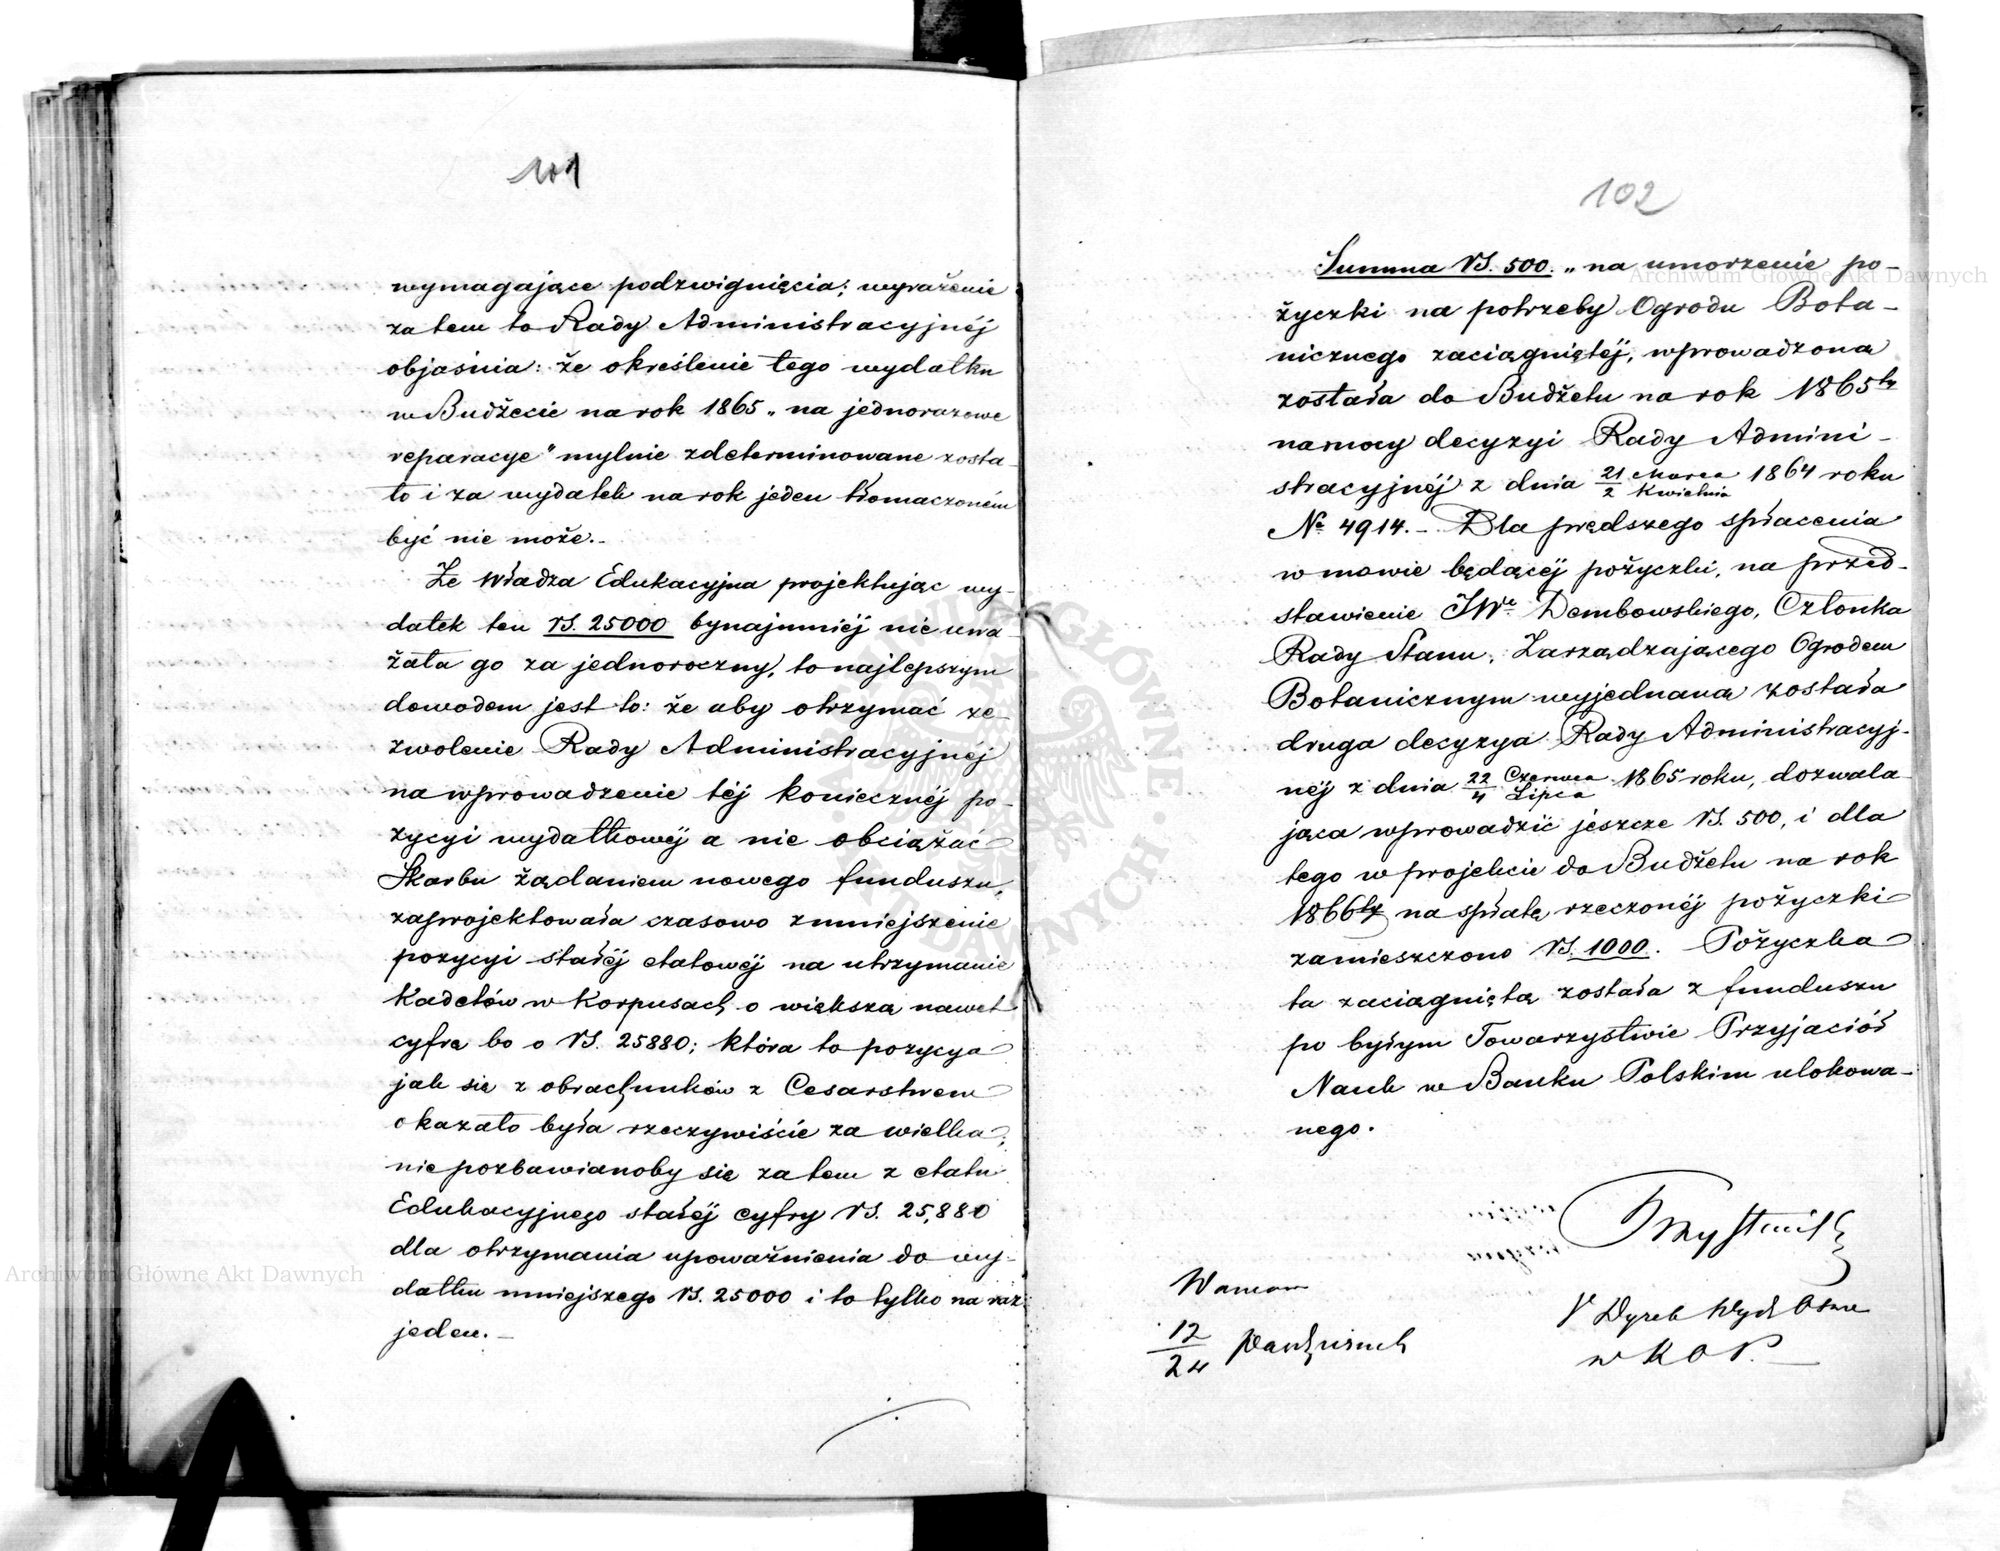 101
wymagające podzwignięcia; wyrażenie
zatem to Rady Administracyjnéj
objaśnia: że określenie tego wydatku
w Budżecie na rok 1865 „na jednorazowe
reparacye" mylnie zdeterminowane zosta-
ło i za wydatek na rok jeden tłomaczoném
być nie może.-
Że Władza Edukacyjna projektując wy-
datek ten RS. 25000 bynajmniéj nie uwa-
żała go za jednoroczny, to najlepszym
dowodem jest to: że aby otrzymać ze-
zwolenie Rady Administracyjnéj
na wprowadzenie téj koniecznéj po-
zycyi wydatkowéj a nie obciążać
Skarbu żądaniem nowego funduszu,
zaprojektowała czasowo zmniejszenie
pozycyi stałéj etatowéj na utrzymanie
Kadetów w Korpusach o większą nawet
cyfrę bo o RS. 25880; która to pozycya
jak się z obrachunków z Cesarstwem
okazało była rzeczywiście za wielka;
nie pozbawianoby się zatem z etatu
Edukacyjnego stałéj cyfry RS. 25,880
dla otrzymania upoważnienia do wy-
datku mniejszego RS. 25000 i to tylko na raz
jeden.-
102
Summa RS. 500. „na umorzenie po-
życzki na potrzeby Ogrodu Bota-
nicznego zaciągniętéj, wprowadzona
została do Budżetu na rok 1865ty
na mocy decyzyi Rady Admini-
stracyjnéj z dnia 21 Marca / 2 Kwietnia 1864 roku
No 4914.- Dla prędszego spłacenia
w mowie będącéj pożyczki, na przed-
stawienie JWo Dembowskiego, Członka
Rady Stanu, Zarządzającego Ogrodem
Botanicznym wyjednaną została
druga decyzya Rady Administracyj-
néj z dnia 22 Czerwca / 4 Lipca 1865 roku, dozwala-
jąca wprowadzić jeszcze RS. 500, i dla
tego w projekcie do Budżetu na rok
1866ty na spłatę rzeczonéj pożyczki
zamieszczono RS. 1000. Pożyczka
ta zaciągniętą została z funduszu
po byłym Towarzystwie Przyjaciół
Nauk w Banku Polskim ulokowa-
nego.
12
24 Październik
w K O P.
Archiwum Główne Akt Dawnych
Archiwum Główne Akt Dawnych
ARCHIWUM GŁÓWNE AKT DAWNYCH